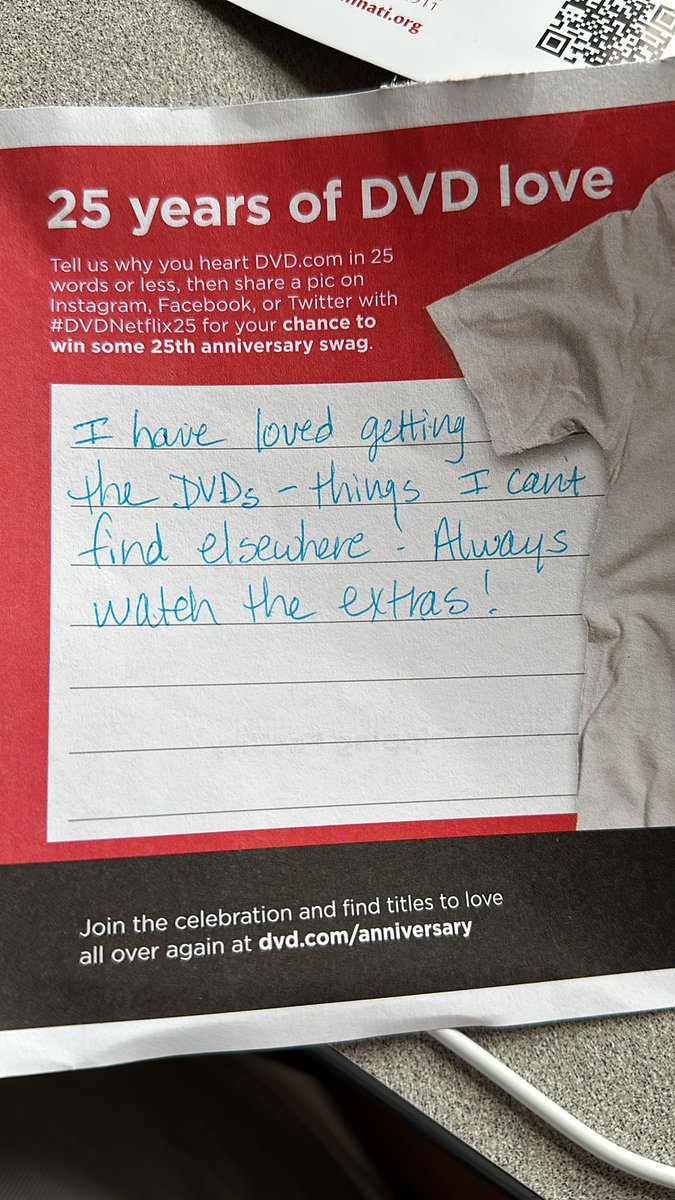 nnati.org
25 years of DVD love
Tell us why you heart DVD.com in 25
words or less, then share a pic on
Instagram, Facebook, or Twitter with
#DVDNetflix25 for your chance to
win some 25th anniversary swag.
I have loved getting
the DVDs - things I can't
find elsewhere! Always
watch the extras!
Join the celebration and find titles to love
all over again at dvd.com/anniversary